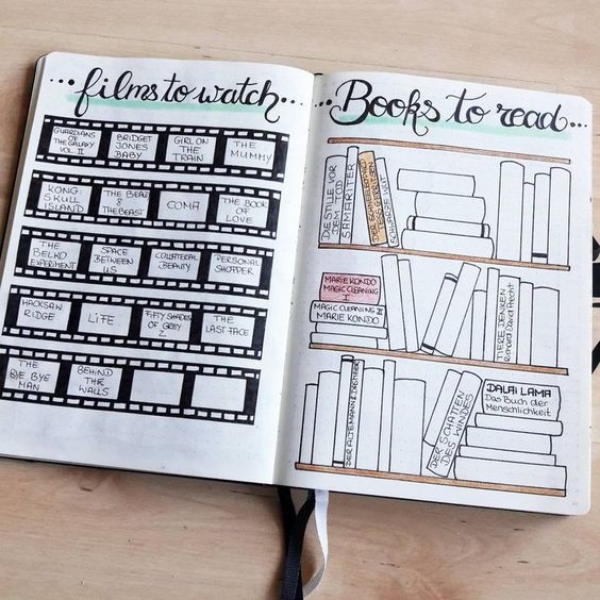 ...films to watch...
GUARDIANS
OF
THE GALAXY
VOL. II
BRIDGET
JONES
BABY
GIRL ON
THE
TRAIN
THE
MUMMY
KONG:
SKULL
ISLAND
THE BEAST
&
THE BEAST
COMA
THE BOOK
OF
LOVE
THE
BELKO
EXPERIMENT
SPACE
BETWEEN
US
COLLATERAL
BEAUTY
PERSONAL
SHOPPER
HACKSAW
RIDGE
LiFE
FIFTY SHADES
OF GREY
2
THE
LAST FACE
THE
BYE BYE
MAN
BEHIND
THE
WALLS
...Books to read...
DIE STILLE VOR
DEM TOD
SAMARITER
SCHWARZE WUT
MARIE KONDO
MAGIC CLEANING
I
MAGIC CLEANING II
MARIE KONDO
TIERE DENKEN
Richard David Precht
DER ALTE MANN & DAS MEER
DER SCHATTEN
DES WINDES
DALAI LAMA
Das Buch der
Menschlichkeit